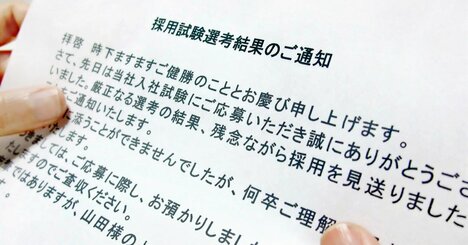 採用試験選考結果のご通知
拝啓　時下ますますご健勝のこととお慶び申し上げます。
さて、先日は当社入社試験にご応募いただき誠にありがとうござ
いました。厳正なる選考の結果、残念ながら採用を見送りました
ご通知いたします。
添うことができませんでしたが、何卒ご理解
しては、ご応募に際し、お預かりしました
ますのでご査収ください。
ではありますが、山田様の